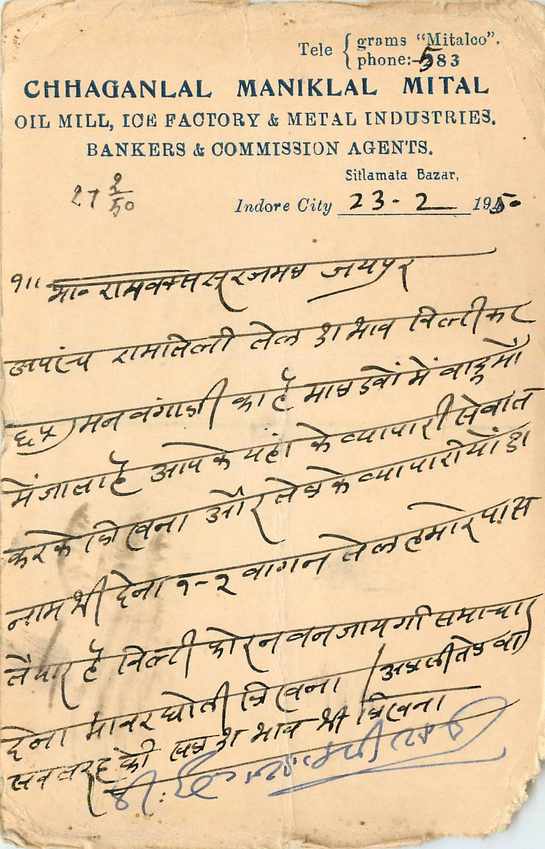 Tele { grams "Mitalco".
phone:-583
CHHAGANLAL MANIKLAL MITAL
OIL MILL, ICE FACTORY & METAL INDUSTRIES.
BANKERS & COMMISSION AGENTS.
Sitlamata Bazar,
27 2/50
Indore City 23-2 1950
१।। भा० रामबक्स सूरजमल जयपुर
अपरंच रामतिल्ली तेल का भाव बिल्टी कट
मन बंगाली का है
में जाता है आप के यहां के व्यापारी से बात
करके लिखना और तेल के व्यापारीयों का
नाम भी देना १-२ वागन तेल हमारे पास
तैयार है बिल्टी फोरन बन जायगी समाचार
देना लिखना
सब तरह की का भाव भी लिखना